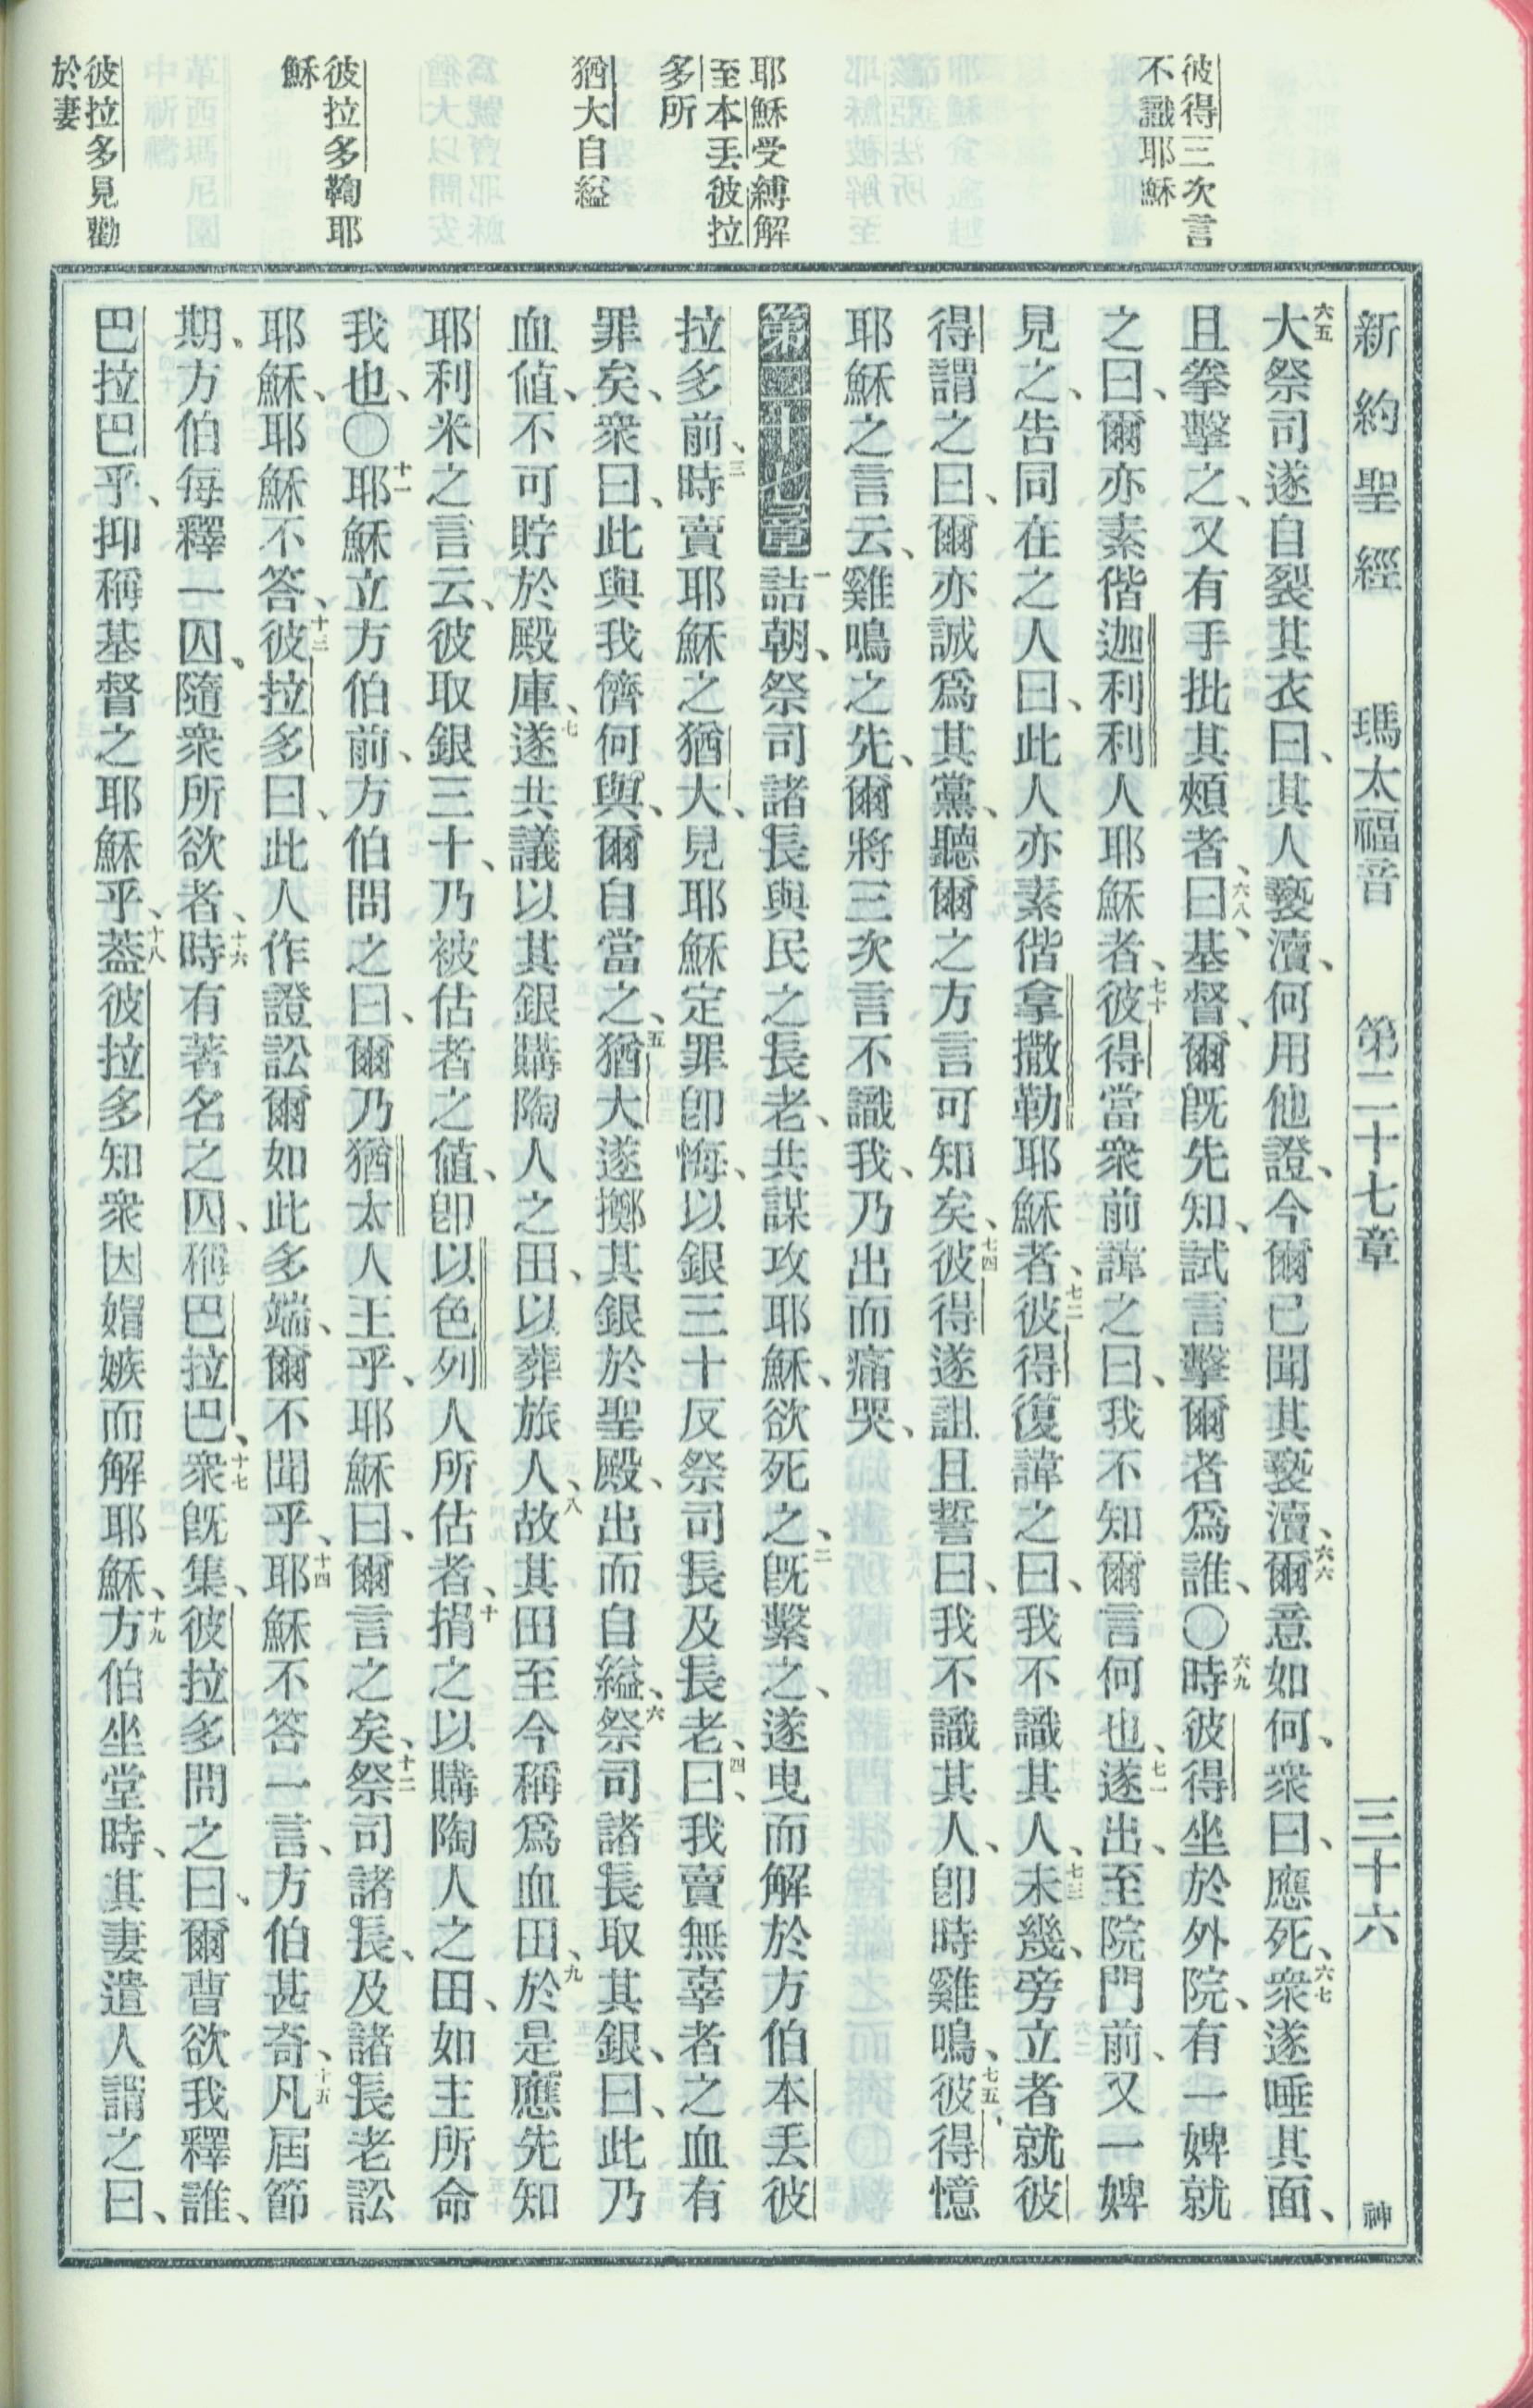 新約聖經 瑪太福音 第二十七章 三十六 神
彼得三次言
不識耶穌
耶穌受縛解
至本丟彼拉
多所
猶大自縊
彼拉多鞫耶
穌
彼拉多見勸
於妻
六五大祭司遂自裂其衣曰、其人褻瀆、何用他證、今爾已聞其褻瀆、六六爾意如何、衆曰、應死、六七衆遂唾其面、
且拳擊之、又有手批其頰者、六八曰、基督、爾旣先知、試言擊爾者爲誰、〇六九時彼得坐於外院、有一婢就
之曰、爾亦素偕迦利利人耶穌者、七十彼得當衆前諱之曰、我不知爾言何也、七一遂出、至院門前、又一婢
見之、告同在之人曰、此人亦素偕拿撒勒耶穌者、七二彼得復諱之曰、我不識其人、七三未幾、旁立者就彼
得謂之曰、爾亦誠爲其黨、聽爾之方言可知矣、七四彼得遂詛且誓曰、我不識其人、卽時雞鳴、七五彼得憶
耶穌之言云、雞鳴之先、爾將三次言不識我、乃出而痛哭、
第二十七章 一詰朝、祭司諸長與民之長老、共謀攻耶穌、欲死之、二旣繫之、遂曳而解於方伯本丟彼
拉多前、三時賣耶穌之猶大、見耶穌定罪卽悔、以銀三十反祭司長及長老、四曰、我賣無辜者之血有
罪矣、衆曰、此與我儕何與、爾自當之、五猶大遂擲其銀於聖殿、出而自縊、六祭司諸長取其銀、曰、此乃
血値、不可貯於殿庫、七遂共議以其銀購陶人之田、以葬旅人、八故其田至今稱爲血田、九於是應先知
耶利米之言云、彼取銀三十、乃被估者之値、卽以色列人所估者、十捐之以購陶人之田、如主所命
我也、〇十一耶穌立方伯前、方伯問之曰、爾乃猶太人王乎、耶穌曰、爾言之矣、十二祭司諸長、及諸長老訟
耶穌、耶穌不答、十三彼拉多曰、此人作證訟爾如此多端、爾不聞乎、十四耶穌不答一言、方伯甚奇、十五凡屆節
期、方伯每釋一囚、隨衆所欲者、十六時有著名之囚、稱巴拉巴、十七衆旣集、彼拉多問之曰、爾曹欲我釋誰、
巴拉巴乎、抑稱基督之耶穌乎、十八蓋彼拉多知衆因媢嫉而解耶穌、十九方伯坐堂時、其妻遣人謂之曰、